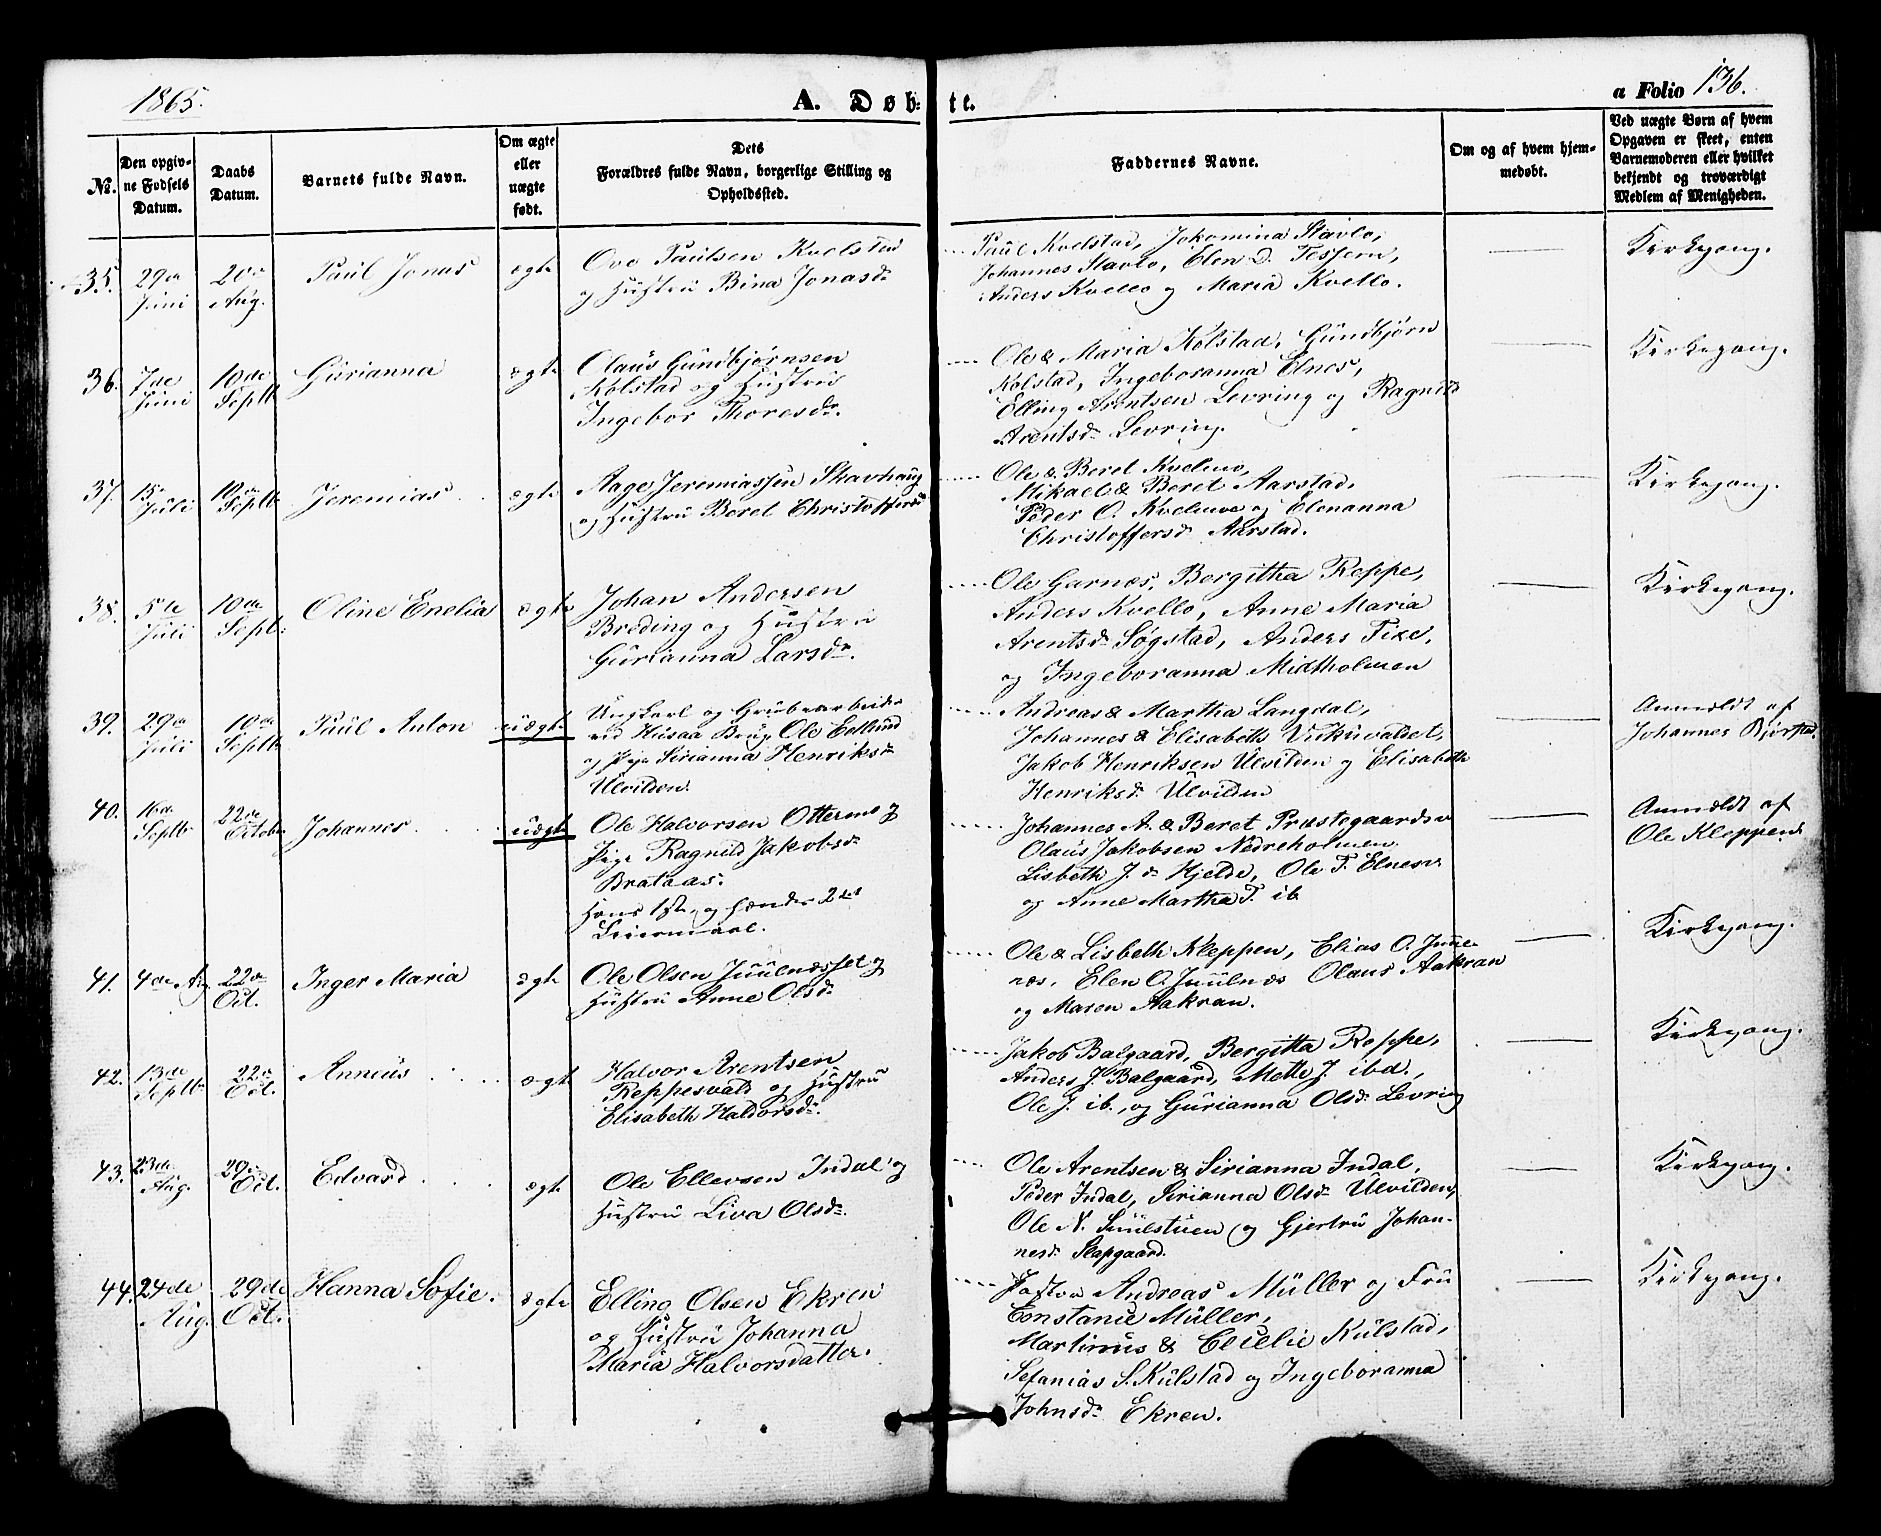 1865.
A. Døb-
te.
a Folio 136.
No.
Den opgiv-
ne Fødsels
Datum.
Daabs
Datum.
Barnets fulde Navn.
Om ægte
eller
uægte
født.
Dets
Forældres fulde Navn, borgerlige Stilling og
Opholdssted.
Faddernes Navne.
Om og af hvem hjem-
medøbt.
Ved uægte Børn af hvem
Opgaven er skeet, enten
Barnemoderen eller hvilket
bekjendt og troværdigt
Medlem af Menigheden.
35.
29de
Juni
20de
Aug.
Paul Jonas
ægte
Ove Paulsen Kvelstad
og Hustru Bina Jonasdr
Paul Kvelstad, Jokomina Slavlo,
Johannes Slavlo, Elen D. Tessem,
Anders Kvello og Maria Kvello.
Kirkegang.
36.
7de
Juni
10de
Septb
Gurianna
ægte
Olaus Gundbjørnsen
Kolstad og Hustru
Ingebor Thoresdr.
Ole & Maria Kolstad, Gundbjørn
Kolstad, Ingeboranna Elnes,
Elling Arentsen Levring og Ragnild
Arentsdr Levring.
Kirkegang.
37.
15de
Juli
10de
Septb
Jeremias
ægte
Aage Jeremiassen Skavhaug
og Hustru Beret Christoffersdr
Ole & Beret Kvelmo,
Mikael & Beret Aarstad,
Peder O. Kvelmo og Elenanna
Christoffersdr Aarstad.
Kirkegang.
38.
5te
Juli
10de
Septb:
Oline Enelia
ægte
Johan Andersen
Breding og Hustru
Gurianna Larsdr.
Ole Garnæs, Bergitha Reppe,
Anders Kvello, Anne Maria
Arentsdr Søgstad, Anders Tixe,
og Ingeboranna Midtholmen
Kirkegang.
39.
29de
Juli
10de
Septb
Paul Anton
uægte
Ungkarl og Grubearbeider
ved Hisaa Brug Ole Edlund
og Pige Sirianna Henriksdr
Ulvilden.
Andreas & Martha Langdal,
Johannes & Elisabeth Vukuvaldet,
Jakob Henriksen Ulvilden og Elisabeth
Henriksdr Ulvilden
Anmeldt af
Johannes
40.
16de
Septb
22de
Octob
Johannes
uægte
Ole Halvorsen Ottermo og
Pige Ragnild Jakobsdr
Brataas.
Hans 1ste og hendes 2det
Leiermaal.
Johannes A. & Beret Præstegaardsv
Olaus Jakobsen Nedreholmen
Lisbeth J. dr Hjelde, Ole T. Elnesv.
og Anne Martha T. ib.
Anmeldt af
Ole Kleppen.
41.
4de Aug
22de
Oct.
Inger Maria
ægte
Ole Olsen Juulnæsset og
Hustru Anne Olsdr
Ole & Lisbeth Kleppen, Elias O. Juul-
næs, Elen O. Juulnæs Olaus Aakran
og Maren Aakran.
Kirkegang.
42.
13de
Septb
22de
Oct.
Annæus
ægte
Halvor Arentsen
Reppesvald og Hustru
Elisabeth Haldorsdr.
Jakob Balgaard, Bergitta Reppe,
Anders J. Balgaard, Mette J. ibd.,
Ole J. ib., og Gurianna Olsdr Levring
Kirkegang.
43.
23de
Aug.
29de
Oct.
Edvard
ægte
Ole Ellevsen Indal og
Hustru Liva Olsdr.
Ole Arentsen & Sirianna Indal,
Peder Indal, Sirianna Olsdr Ulvilden,
Ole N. Suulstuen og Gjertru Johan-
nesdr Slapgaard.
Kirkegang.
44.
24de
Aug.
29de
Oct.
Hanna Sofie.
ægte
Elling Olsen Ekren
og Hustru Johanna
Maria Halvorsdatter.
Pastor Andreas Müller og Fru
Constance Müller,
Martinus & Cecilie Kulstad,
Sefanias S. Kulstad og Ingeboranna
Johnsdr Ekren.
Kirkegang.